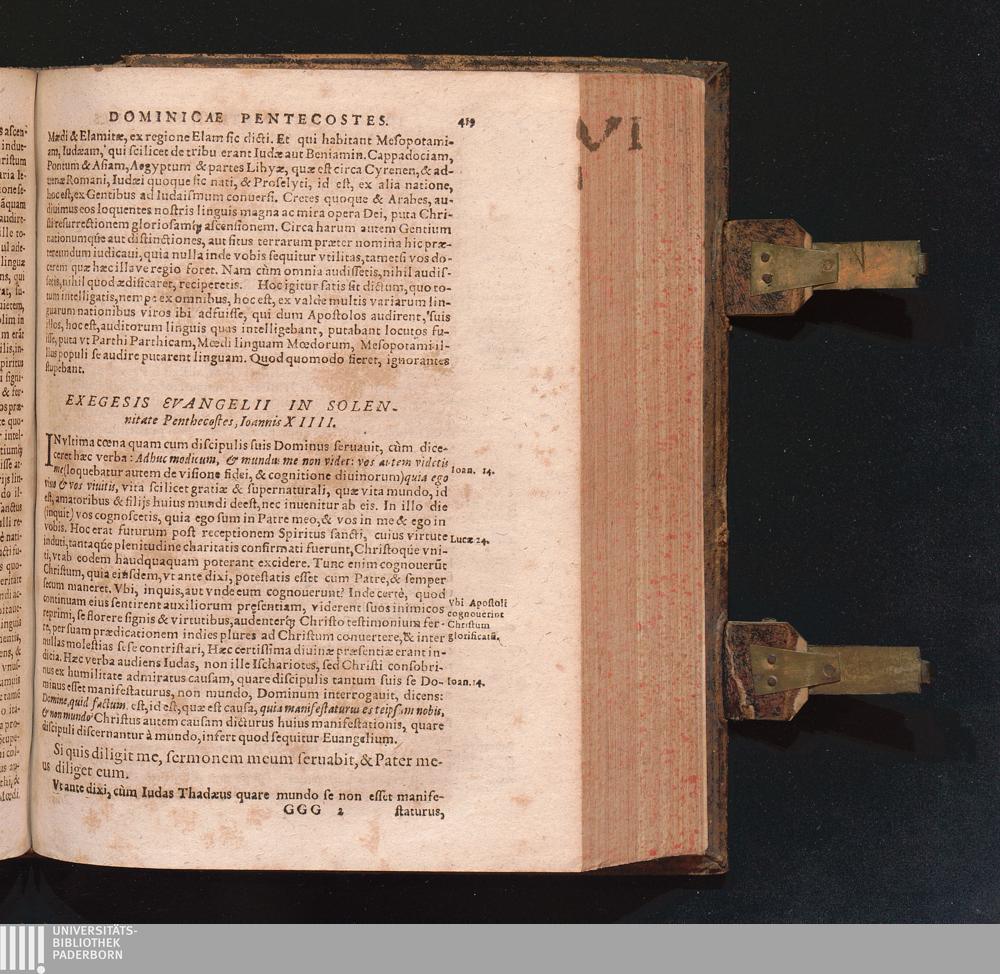 DOMINICAE PENTECOSTES. 419
Mædi & Elamitæ, ex regione Elam sic dicti. Et qui habitant Mesopotami-
am, Iudæam, qui scilicet de tribu erant Iudæ aut Beniamin. Cappadociam,
Pontum & Asiam, Aegyptum & partes Libyæ, quæ est circa Cyrenen, & ad-
uenæ Romani, Iudæi quoque sic nati, & Proselyti, id est, ex alia natione,
hoc est, ex Gentibus ad Iudaismum conuersi. Cretes quoque & Arabes, au-
diuimus eos loquentes nostris linguis magna ac mira opera Dei, puta Chri-
sti resurrectionem gloriosamq; ascensionem. Circa harum autem Gentium
nationumque aut distinctiones, aut situs terrarum præter nomina hic præ-
tereundum iudicaui, quia nulla inde vobis sequitur vtilitas, tametsi vos do-
cerem quæ hæc illa ve regio foret. Nam cùm omnia audissetis, nihil audis-
setis, nihil quod ædificaret, reciperetis. Hoc igitur satis sit dictum, quo to-
tum intelligatis, nempe ex omnibus, hoc est, ex valde multis variarum lin-
guarum nationibus viros ibi adfuisse, qui dum Apostolos audirent, suis
illos, hoc est, auditorum linguis quas intelligebant, putabant locutos fu-
isse, puta vt Parthi Parthicam, Mœdi linguam Mœdorum, Mesopotamii il-
lius populi se audire putarent linguam. Quod quomodo fieret, ignorantes
stupebant.
EXEGESIS EVANGELII IN SOLEN-
nitate Penthecostes, Ioannis XIIII.
INvltima cœna quam cum discipulis suis Dominus seruauit, cùm dice-
ceret hæc verba: Adhuc modicum, & mundus me non videt: vos autem videtis
me (loquebatur autem de visione fidei, & cognitione diuinorum) quia ego
viuo & vos viuitis, vita scilicet gratiæ & supernaturali, quæ vita mundo, id
est, amatoribus & filijs huius mundi deest, nec inuenitur ab eis. In illo die
(inquit) vos cognoscetis, quia ego sum in Patre meo, & vos in me & ego in
vobis. Hoc erat futurum post receptionem Spiritus sancti, cuius virtute
induti, tantaque plenitudine charitatis confirmati fuerunt, Christoque vni-
ti, vt ab eodem haudquaquam poterant excidere. Tunc enim cognouerũt
Christum, quia eiusdem, vt ante dixi, potestatis esset cum Patre, & semper
secum maneret. Vbi, inquis, aut vnde eum cognouerunt? Inde certè, quod
continuam eius sentirent auxiliorum præsentiam, viderent suos inimicos
reprimi, se florere signis & virtutibus, audenterq; Christo testimonium fer-
re, per suam prædicationem indies plures ad Christum conuertere, & inter
nullas molestias sese contristari, Hæc certissima diuinæ præsentiæ erant in-
dicia. Hæc verba audiens Iudas, non ille Ischariotes, sed Christi consobri-
nus ex humilitate admiratus causam, quare discipulis tantum suis se Do-
minus esset manifestaturus, non mundo, Dominum interrogauit, dicens:
Domine, quid factum est, id est, quæ est causa, quia manifestaturus es teipsum nobis,
& non mundo? Christus autem causam dicturus huius manifestationis, quare
discipuli discernantur à mundo, infert quod sequitur Euangelium.
Si quis diligit me, sermonem meum seruabit, & Pater me-
us diliget eum.
Vt ante dixi, cùm Iudas Thadæus quare mundo se non esset manife-
GGG 2 staturus,
Ioan. 14.
Lucæ 24.
Vbi Apostoli
cognouerint
Christum
glorificatũ.
Ioan. 14.
VI
UNIVERSITÄTS-
BIBLIOTHEK
PADERBORN